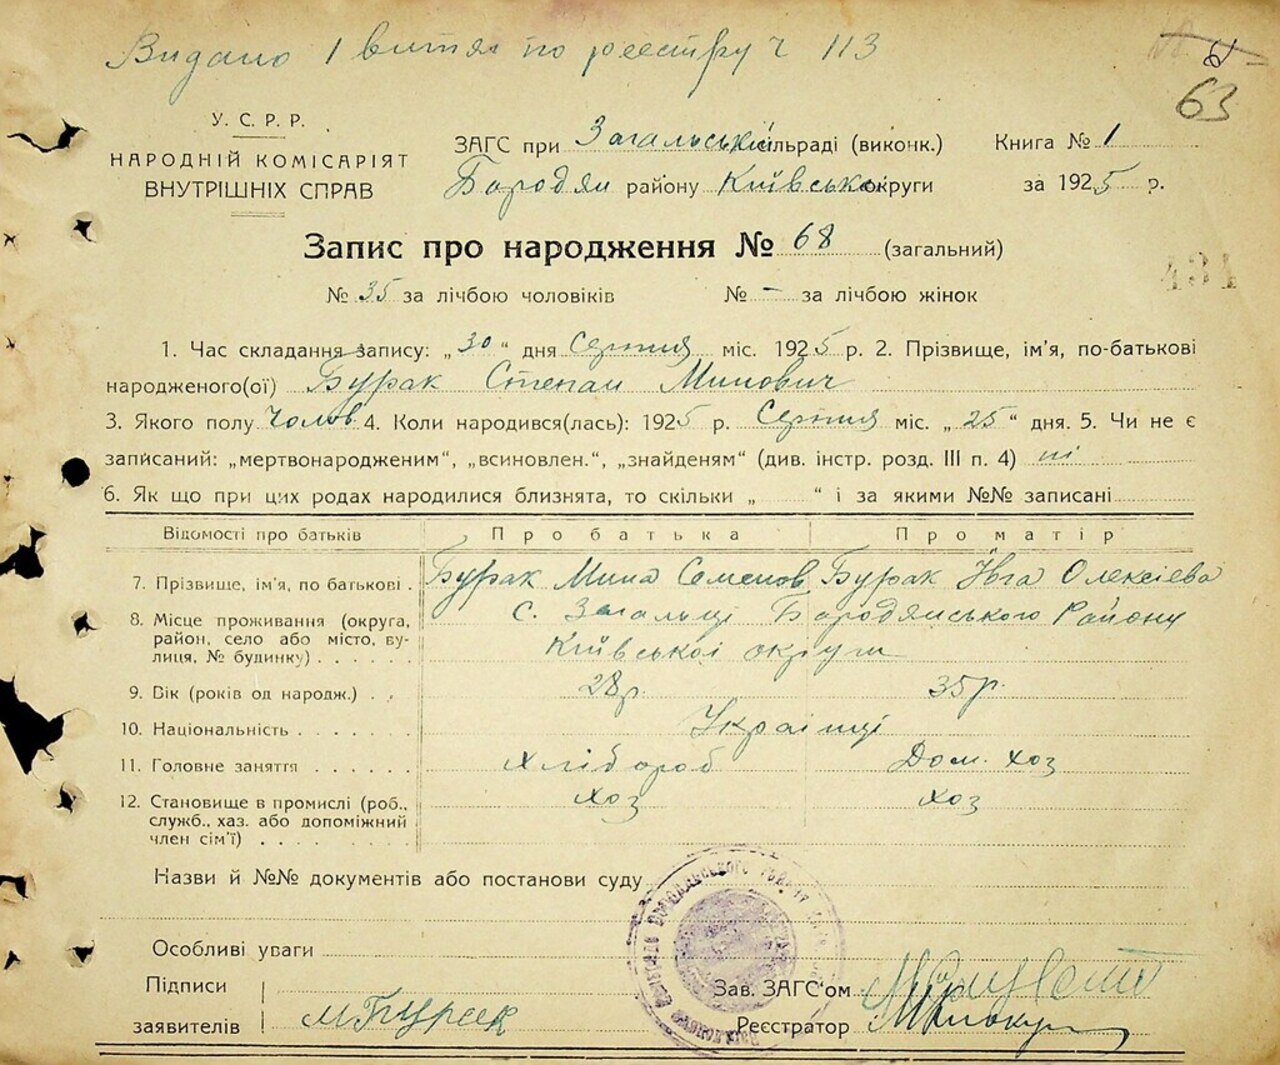 Видано 1 витяг по реєстру ч 113
63
У. С. Р. Р.
НАРОДНІЙ КОМІСАРІЯТ
ВНУТРІШНІХ СПРАВ
ЗАГС при Загальській сільраді (виконк.)
Бородян району Київської округи
Книга № 1
за 1925 р.
Запис про народження № 68 (загальний)
№ 35 за лічбою чоловіків № – за лічбою жінок
1. Час складання запису: „30“ дня Серпня міс. 1925 р. 2. Прізвище, ім'я, по-батькові
народженого(ої) Бурак Степан Минович
3. Якого полу Чолов. 4. Коли народився(лась): 1925 р. Серпня міс. „25“ дня. 5. Чи не є
записаний: „мертвонародженим“, „всиновлен.“, „знайденям“ (див. інстр. розд. III п. 4) ні
6. Як що при цих родах народилися близнята, то скільки „ “ і за якими №№ записані
Відомості про батьків Про батька Про матір
7. Прізвище, ім'я, по батькові . Бурак Мина Семенов Бурак Івга Олексієва
8. Місце проживання (округа, с. Загальці Бородянського Району
район, село або місто, ву-
лиця, № будинку) . . . . . . Київської округи
9. Вік (років од народж.) . . 28р. 35р.
10. Національність . . . . . . . Українці
11. Головне заняття . . . . . . Хлібороб Дом. хоз
12. Становище в промислі (роб., хоз хоз
служб., хаз. або допоміжний
член сім'ї) . . . . . . . .
Назви й №№ документів або постанови суду
Особливі уваги
Підписи
заявителів МБурак
Зав. ЗАГС'ом
Реєстратор